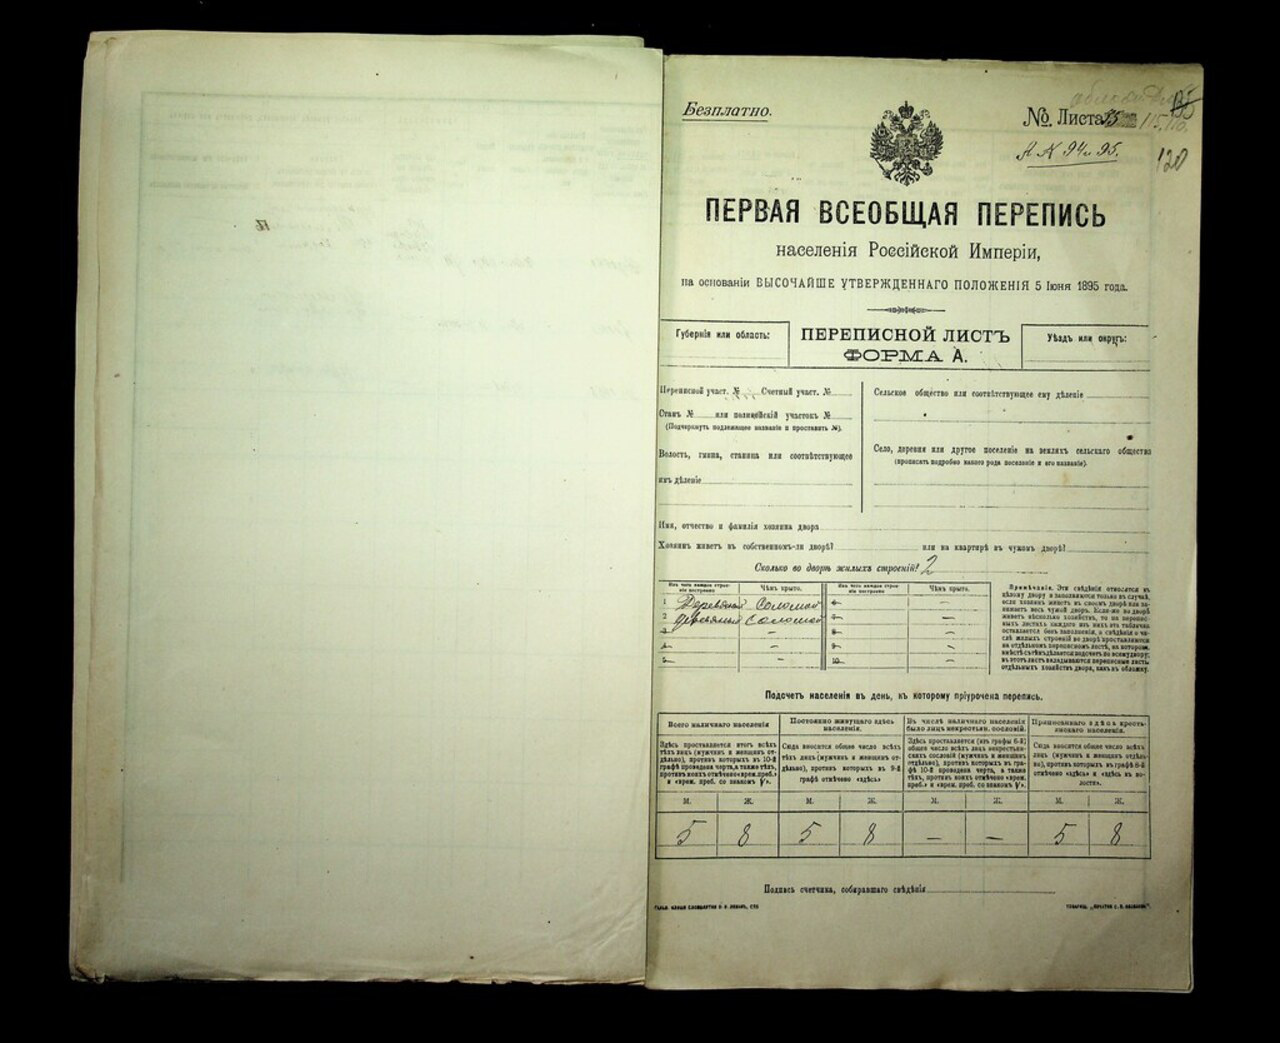 Безплатно.
№ Листа
А № 94 и 95.
120
ПЕРВАЯ ВСЕОБЩАЯ ПЕРЕПИСЬ
населенія Россійской Имперіи,
на основаніи ВЫСОЧАЙШЕ УТВЕРЖДЕННАГО ПОЛОЖЕНІЯ 5 Іюня 1895 года.
Губернія или область:
ПЕРЕПИСНОЙ ЛИСТЪ
ФОРМА А.
Уѣздъ или округъ:
Переписной участ. № Счетный участ. №
Станъ № или полицейскій участокъ №
(Подчеркнуть подлежащее названіе и проставить №).
Волость, гмина, станица или соотвѣтствующее
имъ дѣленіе
Сельское общество или соотвѣтствующее ему дѣленіе
Село, деревня или другое поселеніе на земляхъ сельскаго общества
(прописать подробно какого рода поселеніе и его названіе).
Имя, отчество и фамилія хозяина двора
Хозяинъ живетъ въ собственномъ-ли дворѣ? или на квартирѣ въ чужомъ дворѣ?
Сколько во дворѣ жилыхъ строеній? 2
Изъ чего каждое строеніе построено Чѣмъ крыто. Изъ чего каждое строеніе построено Чѣмъ крыто.
1 Деревяный Соломой 6 –
2 деревяный Соломой 7 –
3 – 8 –
4 – 9 –
5 – 10 –
Примѣчаніе. Эти свѣдѣнія относятся къ
цѣлому двору и заполняются только въ случаѣ,
если хозяинъ живетъ въ своемъ дворѣ или занимаетъ
весь чужой дворъ. Если-же во дворѣ
живетъ нѣсколько хозяйствъ, то на переписныхъ
листахъ каждаго изъ нихъ эта табличка
оставляется безъ заполненія, а свѣдѣнія о числѣ
жилыхъ строеній во дворѣ проставляются
на отдѣльномъ переписномъ листѣ, на которомъ
вмѣстѣ съ тѣмъ дѣлается подсчетъ по всему двору;
въ этотъ листъ вкладываются переписные листы
отдѣльныхъ хозяйствъ двора, какъ въ обложку.
Подсчетъ населенія въ день, къ которому пріурочена перепись.
Всего наличнаго населенія
Здѣсь проставляется итогъ всѣхъ
тѣхъ лицъ (мужчинъ и женщинъ отдѣльно),
противъ которыхъ въ 10-й
графѣ проведена черта, а также тѣхъ,
противъ коихъ отмѣчено «врем. преб.»
и «врем. преб. со знакомъ V».
Постоянно живущаго здѣсь
населенія.
Сюда вносится общее число всѣхъ
тѣхъ лицъ (мужчинъ и женщинъ отдѣльно),
противъ которыхъ въ 9-й
графѣ отмѣчено «здѣсь»
Въ числѣ наличнаго населенія
было лицъ некрестьян. сословій.
Здѣсь проставляется (изъ графы 6-й)
общее число всѣхъ лицъ некрестьянскихъ
сословій (мужчинъ и женщинъ
отдѣльно), противъ которыхъ въ графѣ
10-й проведена черта, а также
тѣхъ, противъ коихъ отмѣчено «врем.
преб.» и «врем. преб. со знакомъ V».
Приписаннаго здѣсь крестьянскаго
населенія.
Сюда вносится общее число всѣхъ
лицъ (мужчинъ и женщинъ отдѣльно),
противъ которыхъ въ графѣ 8-й
отмѣчено «здѣсь» и «здѣсь въ волости».
М. Ж. М. Ж. М. Ж. М. Ж.
5 8 5 8 – – 5 8
Подпись счетчика, собиравшаго свѣдѣнія